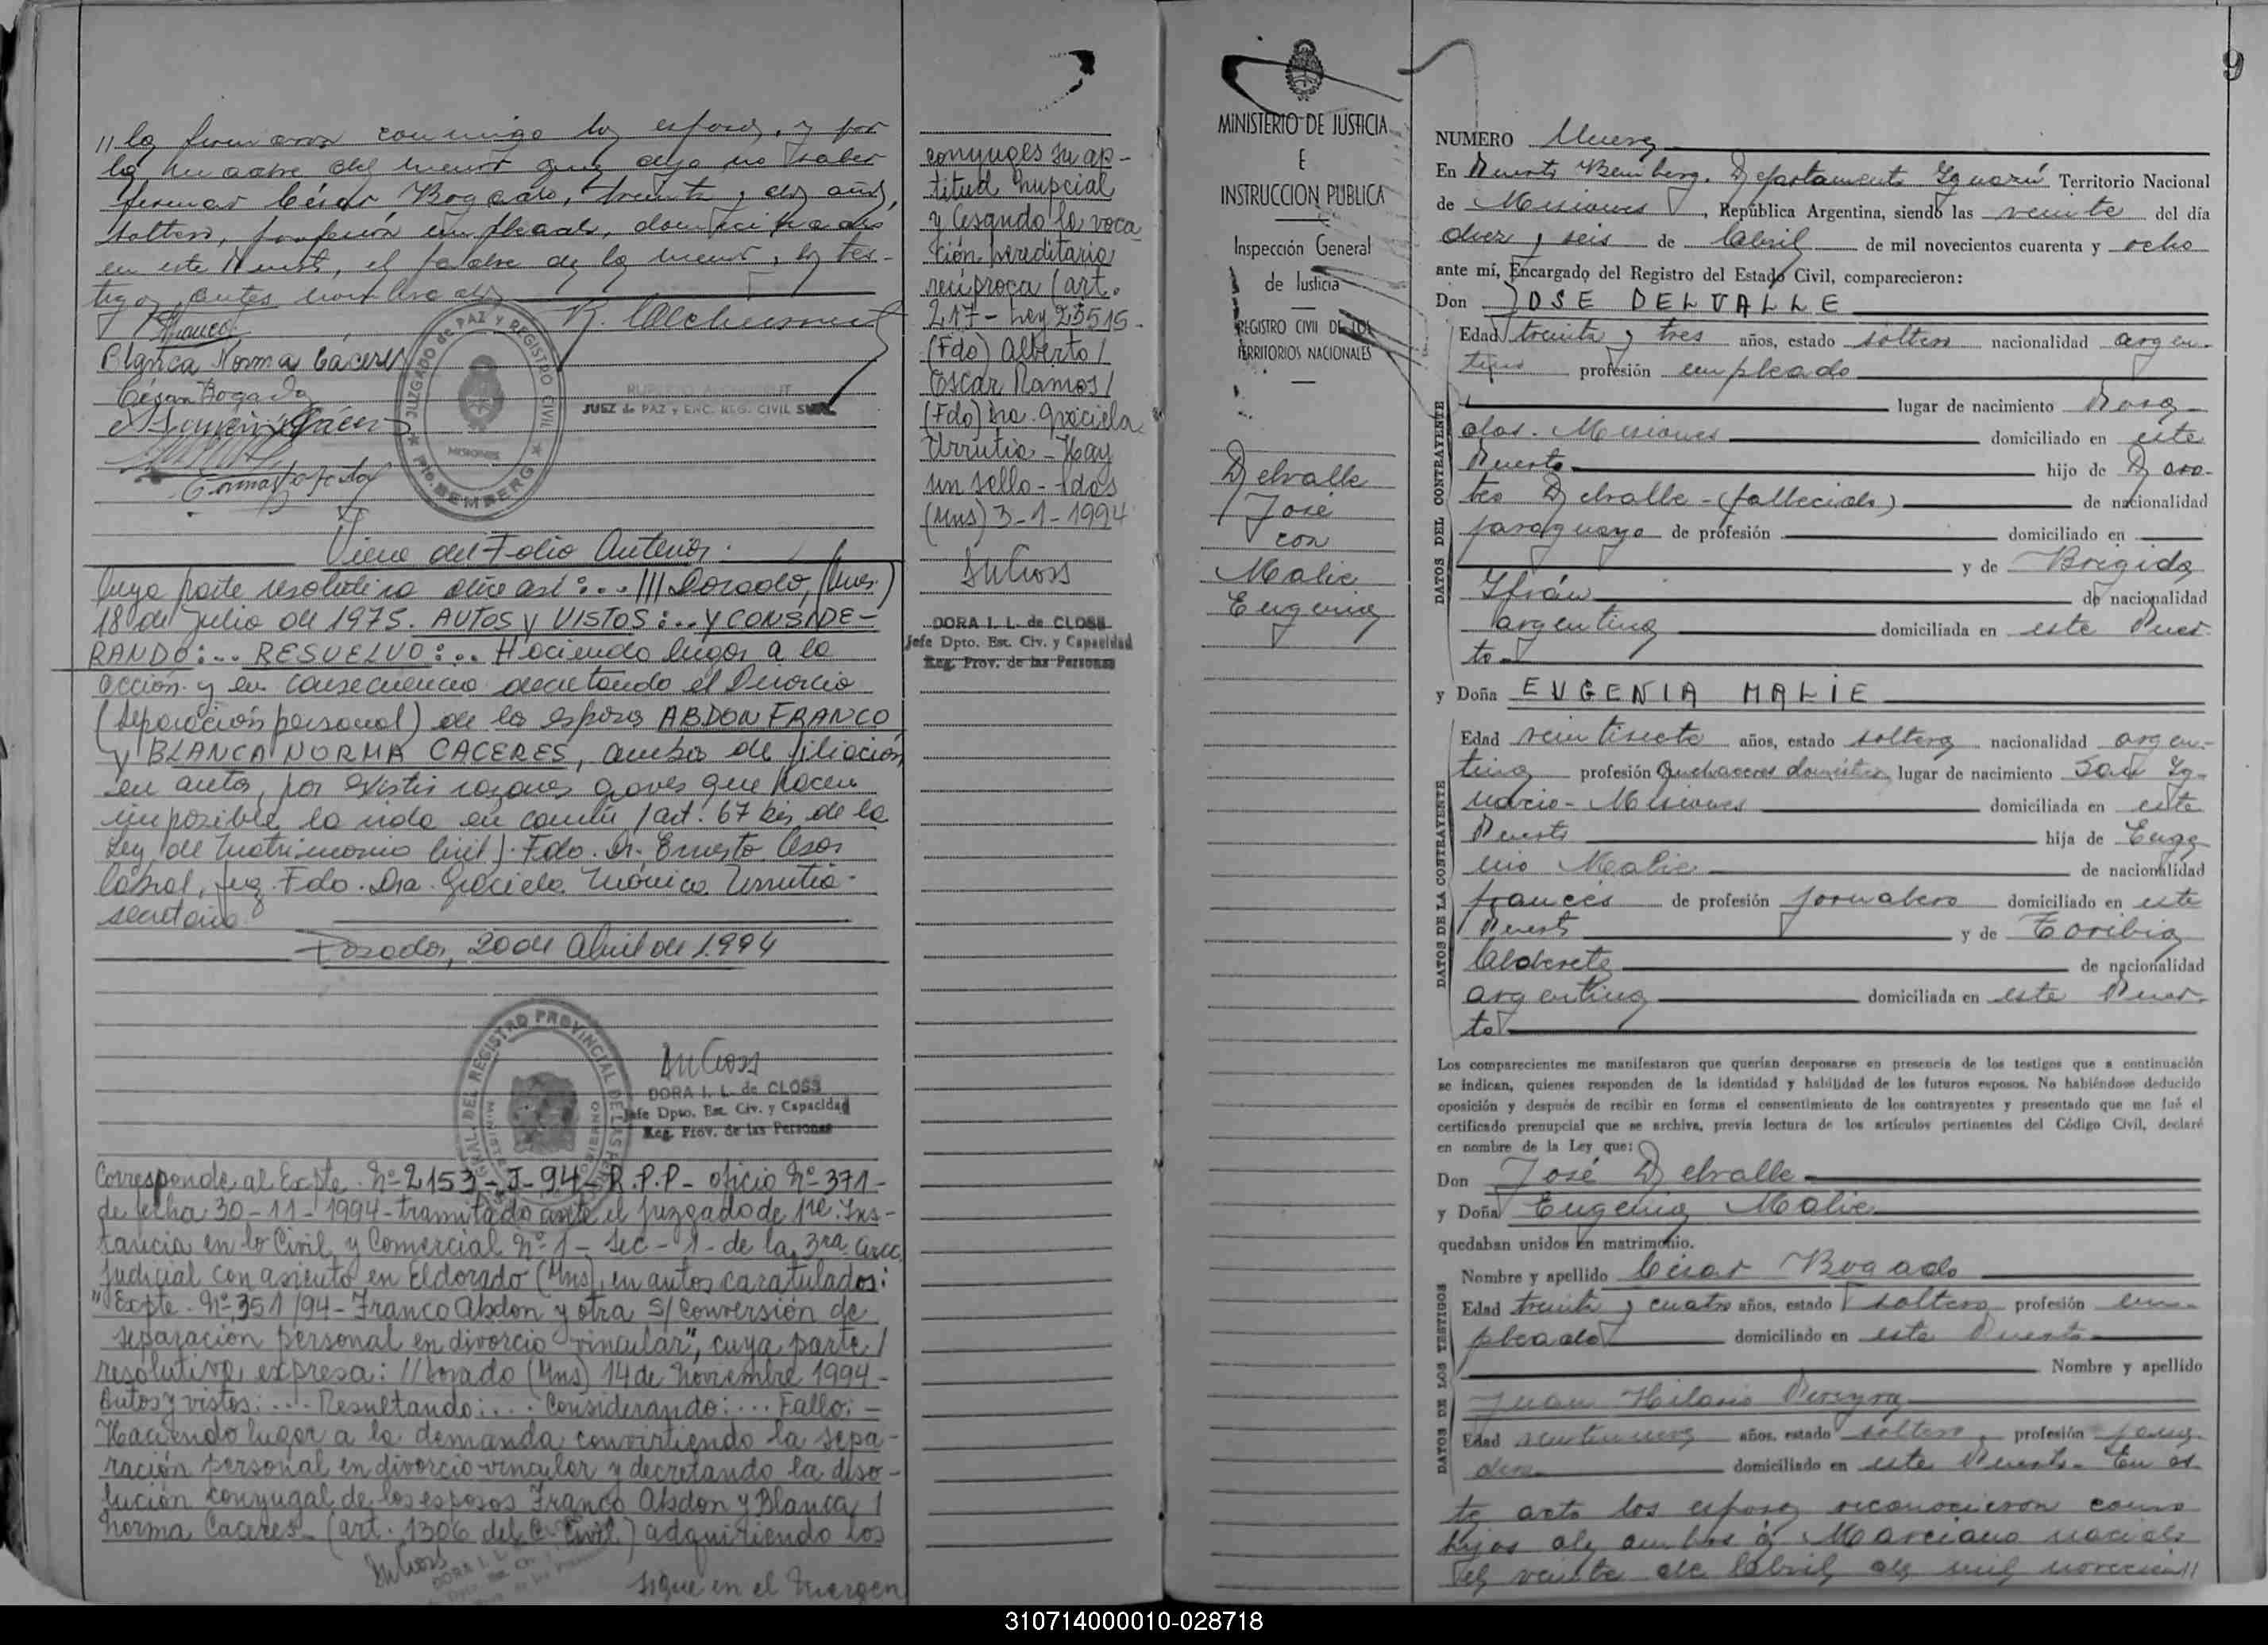 // la firmaron conmigo los esposos, y por
la madre del menor que dijo no saber
firmar César Bogado, treinta y dos años,
soltero, profesión empleado, domiciliado
en este Puerto, el padre de la menor, y tes-
tigos antes nombrados
AFranco
Blanca Norma Cáceres
César Bogado
JUZGADO de PAZ Y REGISTRO CIVIL
MISIONES
Pto. BEMBERG
JUEZ de PAZ y ENC. REG. CIVIL
Viene del Folio Anterior.
Cuya parte resolutiva dice así:... ///Dorado, (Mnes.)
18 de Julio de 1975. AUTOS y VISTOS:.. Y CONSIDE-
RANDO:... RESUELVO:... Haciendo lugar a la
acción y en consecuencia decretando el Divorcio
(separación personal) de los esposos ABDON FRANCO
y BLANCA NORMA CACERES, ambos de filiación
en autos, por existir razones graves que hacen
imposible la vida en común (art. 67 bis de la
Ley de Matrimonio Civil). Fdo. Dr. Ernesto Cesar
Cabral, Juez. Fdo. Dra. Graciela Mónica Urrutia-
secretaria
Posadas, 20 de Abril de 1994
REGISTRO PROVINCIAL DE LAS
DORA I. L. de CLOSS
Jefe Dpto. Est. Civ. y Capacidad
Reg. Prov. de las Personas
Corresponde al Expte. Nº 2153-J-94-R.P.P- oficio Nº 371-
de fecha 30-11-1994-tramitado ante el juzgado de 1ra. Ins-
tancia en lo Civil y Comercial Nº 1- Sec-1- de la 3ra circ.
judicial con asiento en Eldorado (Mns), en autos caratulados:
"Expte. Nº 351/94-Franco Abdon y otra S/ Conversión de
separación personal en divorcio vincular", cuya parte/
resolutiva expresa: //dorado (Mns) 14 de Noviembre 1994-
Autos y vistos:.... Resultando:... Considerando:... Fallo:-
Haciendo lugar a la demanda convirtiendo la sepa-
ración personal en divorcio vincular y decretando la diso-
lución conyugal de los esposos Franco Abdon y Blanca/
Norma Caceres- (art. 1306 del C. Civil) adquiriendo los
DORA I. L.
Sigue en el Margen
conyuges su ap-
titud nupcial
y Cesando la voca
ción hereditaria
recíproca (art.
217- Ley 23515-
(Fdo) Alberto/
Oscar Ramos/
(Fdo) Dra. Graciela
Urrutia-Hay
un sello-
(Mns) 3-1-1994
DORA I. L. de CLOSS
Jefe Dpto. Est. Civ. y Capacidad
Reg. Prov. de las Personas
MINISTERIO DE JUSTICIA
E
INSTRUCCION PUBLICA
Inspección General
de Justicia
REGISTRO CIVIL DE LOS
TERRITORIOS NACIONALES
Delvalle
José
con
Malie
Eugenia
9
NUMERO Nueve
En Puerto Bemberg, Departamento Iguazú Territorio Nacional
de Misiones, República Argentina, siendo las veinte del día
diez y seis de Abril de mil novecientos cuarenta y ocho
ante mí, Encargado del Registro del Estado Civil, comparecieron:
Don JOSE DELVALLE
DATOS DEL CONTRAYENTE
Edad treinta y tres años, estado soltero nacionalidad argen-
tino profesión empleado
lugar de nacimiento Posa-
das. Misiones domiciliado en este
Puerto hijo de Doro-
teo Delvalle-(fallecido) de nacionalidad
paraguayo de profesión domiciliado en
y de Brígida
Ifrán de nacionalidad
argentina domiciliada en este Puer-
to-
y Doña EUGENIA MALIE
DATOS DE LA CONTRAYENTE
Edad veintisiete años, estado soltera nacionalidad argen-
tina profesión Quehaceres domésticos lugar de nacimiento San Ig-
nacio- Misiones domiciliada en este
Puerto hija de Euge
nio Malie de nacionalidad
francés de profesión jornalero domiciliado en este
Puerto y de Toribia
Alderete de nacionalidad
argentina domiciliada en este Puer-
to
Los comparecientes me manifestaron que querían desposarse en presencia de los testigos que a continuación
se indican, quienes responden de la identidad y habilidad de los futuros esposos. No habiéndose deducido
oposición y después de recibir en forma el consentimiento de los contrayentes y presentado que me fué el
certificado prenupcial que se archiva, previa lectura de los artículos pertinentes del Código Civil, declaré
en nombre de la Ley que:
Don José Delvalle
y Doña Eugenia Malie
quedaban unidos en matrimonio.
DATOS DE LOS TESTIGOS
Nombre y apellido César Bogado
Edad treinta y cuatro años, estado soltero profesión em-
pleado domiciliado en este Puerto
Nombre y apellido
Juan Hilario Pereyra
Edad años, estado soltero, profesión
domiciliado en este Puerto- En es-
te acto los esposos reconocieron como
hijos de ambos a Marciano nacido
el veinte de Abril de mil novecien//
310714000010-028718